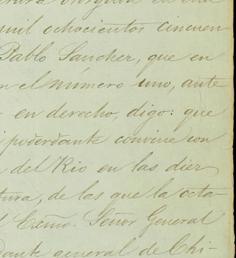 mil ochocientos cincuen
Pablo Sancher, que en
n el número uno, ante
en derecho, digo: que
i poderdante convine con
del Rio en las diez
tura, de las que la octa-
l Exmo. Señor General
dante general de Chi-